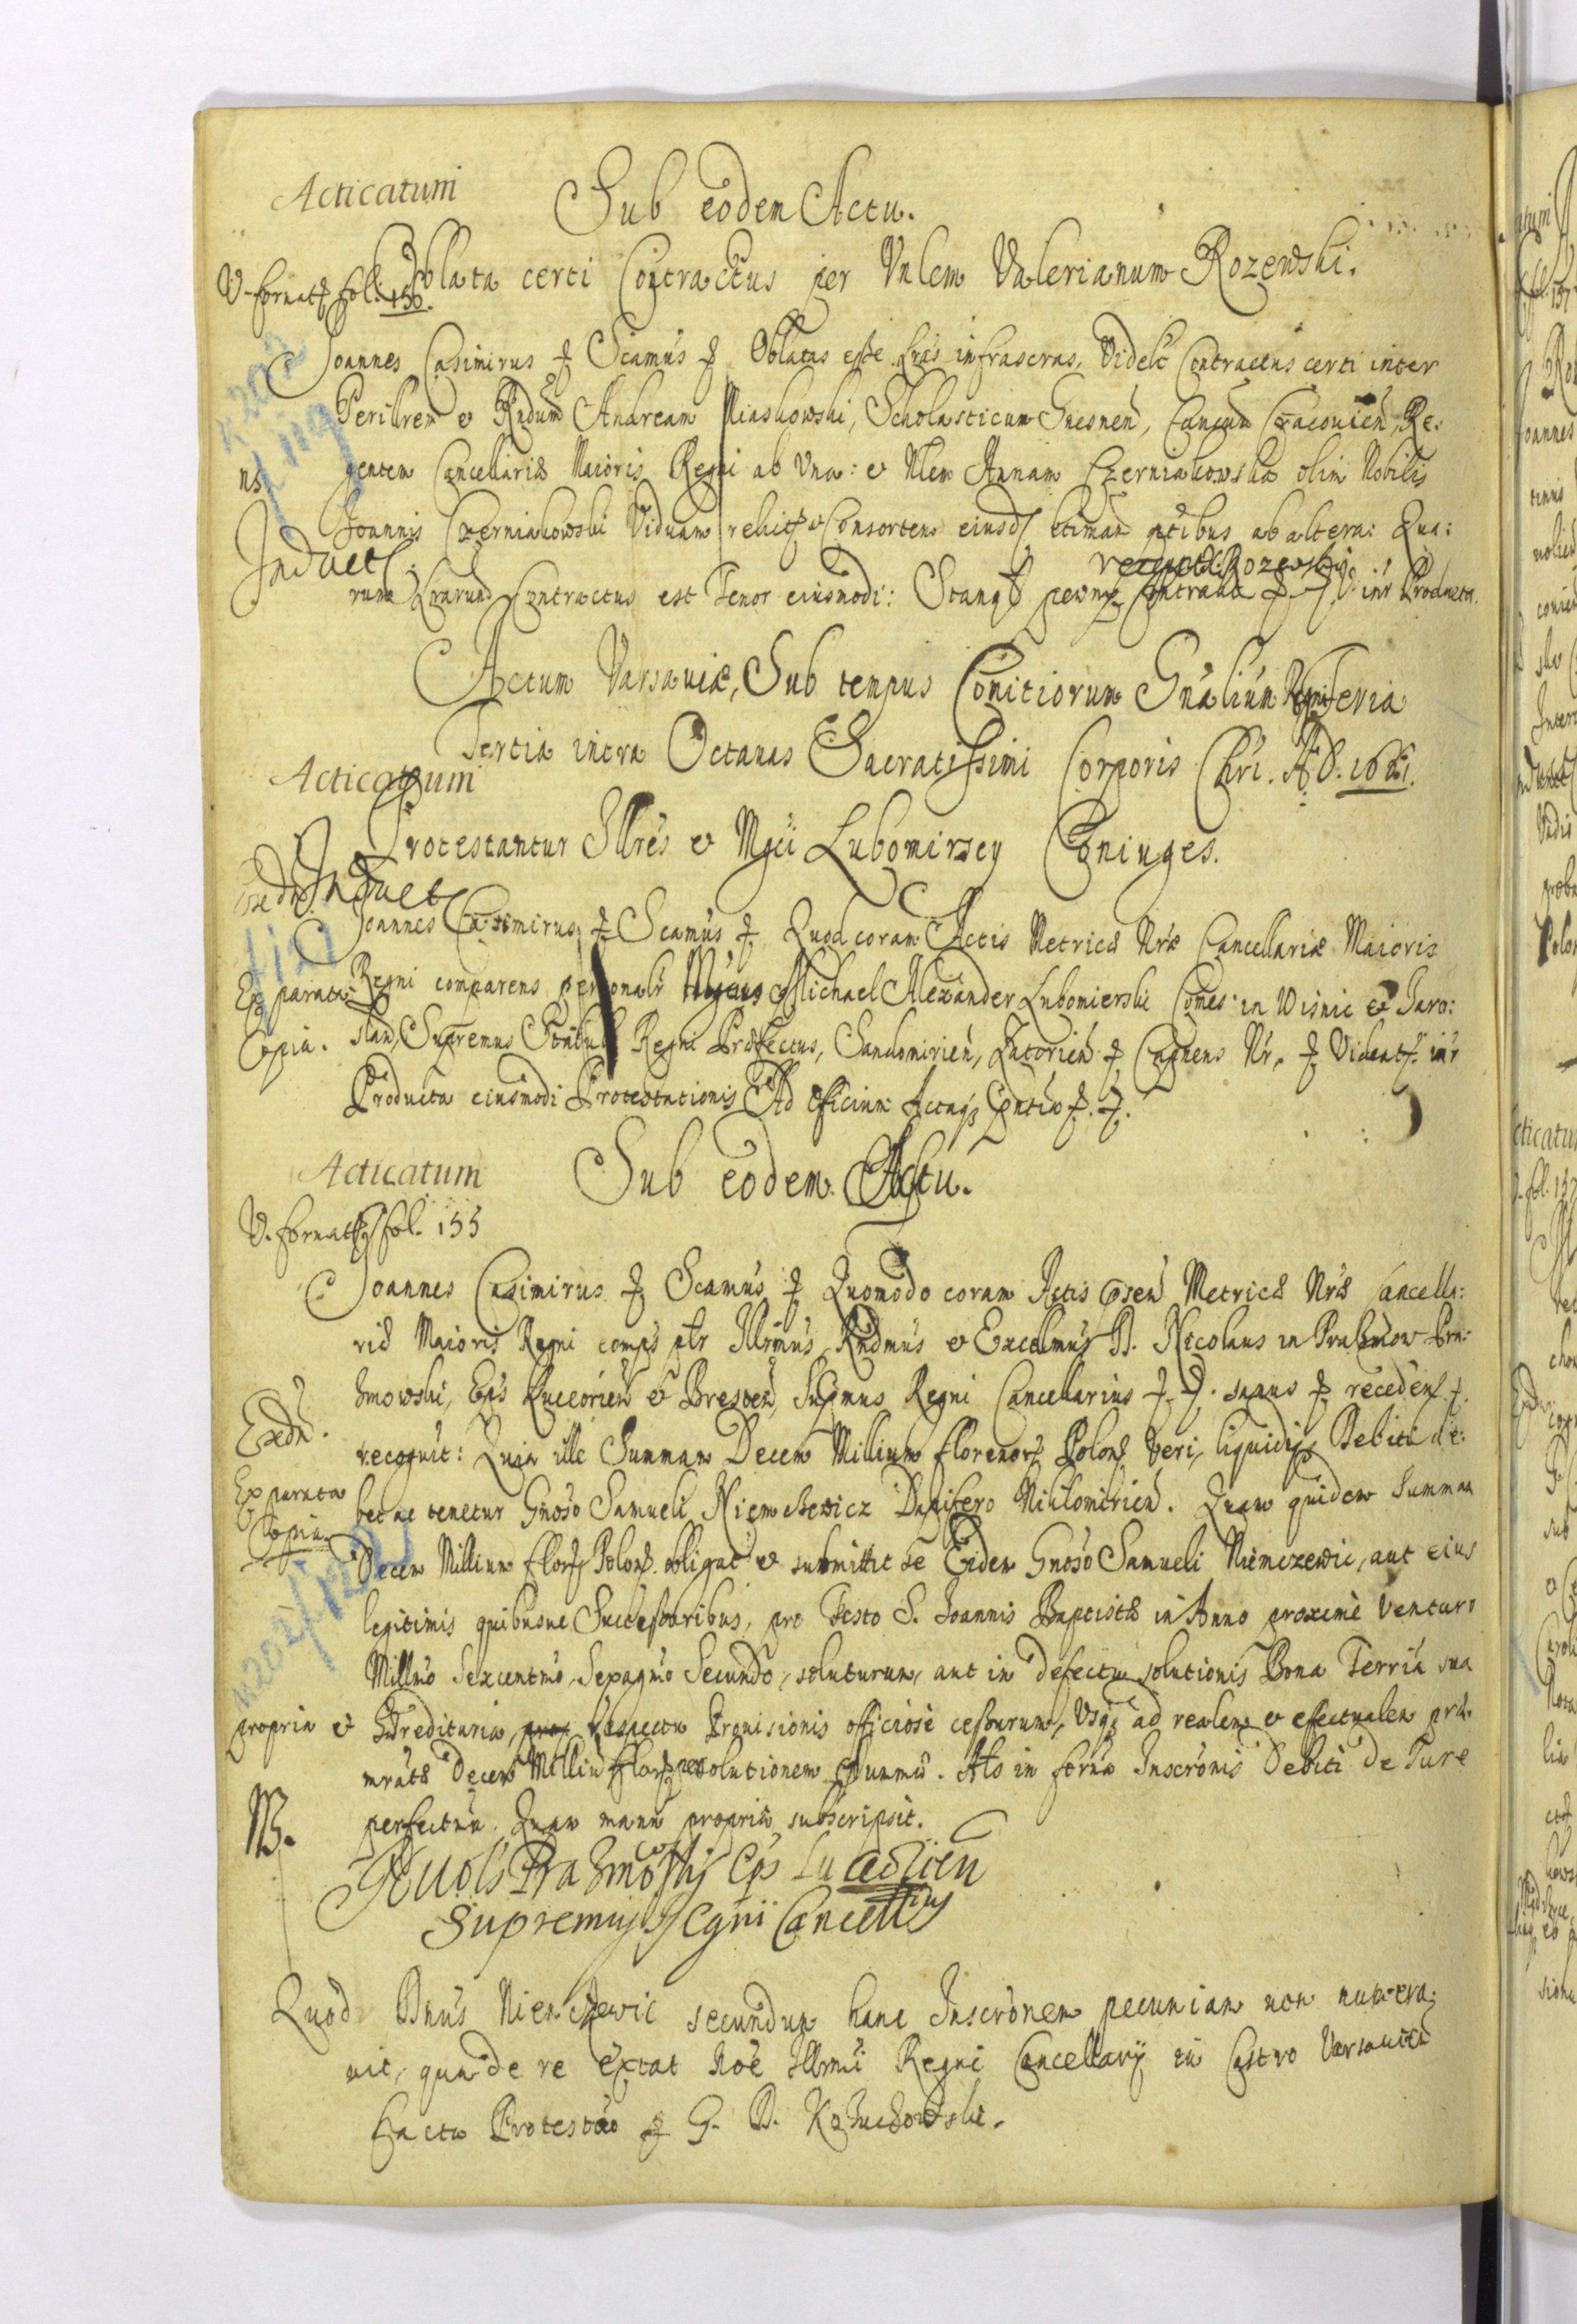 Acticatum
Sub eodem Actu.
V. formatʒ fol. 156.
Oblata certi Contractus per Vnlem Valerianum Rozewski.
Joannes Casimirus ꝭ Scamus ꝭ Oblatas esse lras infrascras, Videlt Contractus certi inter
Perillrem et Rndum Andream Miaskowski, Scholasticum Gnesnen, Cancum Cracouien, Re:
gentem Cancellariæ Maioris Regni ab Vna: et Nlem Annam Czerniakowska olim Nobilis
ns
Joannis Czerniakowski Viduam relictʒ Consortem eiusd ptibus ab altera: Qua:
Induct.
rum Lrarum Contractus est Tenor eiusmodi: Stanął pewny Contract ꝭ ꝭ V. inr Producta.
recognt Rozewski
Actum Varsauiæ, Sub tempus Comitiorum Gnalium Regni feria
Tertia intra Octauas Sacratissimi Corporis Chri. A D. 1661.
Acticatum
Protestantur Illres et Mgci Lubomirscy Coniuges.
Exedn Induct
Joannes Casimirus ꝭ Scamus ꝭ Quod coram Actis Metrices Nræ Cancellariæ Maioris
Ex parata
Regni comparens personalr Mgcus Michael Alexander Lubomierski Comes in Wisnic et Jaro:
Copia.
slaw, Supremus Stabuli Regni Præfectus, Sandomirien, ꝭ Capneus Nr. ꝭ Videatʒ inr
Producta eiusmodi Protestationis Ad Officium Actaqʒ ꝭ. ꝭ.
Acticatum
Sub eodem Actu.
V. formatʒ fol. 155
Joannes Casimirus ꝭ Scamus ꝭ Quomodo coram Actis Metrices Nræ Cancella:
riæ Maioris Regni comps ptr Illrmus Rndmus et Excellmus D. Nicolaus in Prażmow Pra:
żmowski, Eps Luceorien et Bresten, Supmus Regni Cancellarius ꝭ ꝭ. sanus ꝭ recedens ꝭ.
Exedn.
recognit: Quia ille Summam Decem Millium florenorʒ Polonʒ veri, liquidiqʒ Debiti de:
Ex parata
bet ac tenetur Gnoso Samueli Niemczewicz Dapifero. Quam quidem Summam
Copia
Decem Millium florʒ Polonʒ. obligat et submittit se Eidem Gnoso Samueli Niemczewic, aut eius
legitimis quibusue Successoribus, pro Festo S. Joannis Baptistæ in Anno proxime venturo
Millmo Sexcentmo, Sexagmo Secundo, soluturum, aut in defectu solutionis Bona Terria sua
propria et Hæreditaria, respectu Prouisionis officiose cessurum, Vsqʒ ad realem et efectualem præ:
mratæ Decem Milliu florʒ solutionem Summæ. Als in forma Inscronis Debiti de Jure
NB.
perfectum. Quam manu propria subscripsit.
Nicolaus Prażmowskj Eps Luceorien
Supremus Regni Cancellarius
Quod Dnus Niemczewic secundum hanc Inscronem pecuniam non numera:
uit, qua de re extat noe Illrmi Regni Cancellarij in Castro Varsauien
facta Protesto ꝭ G. D. Kożuchowski.